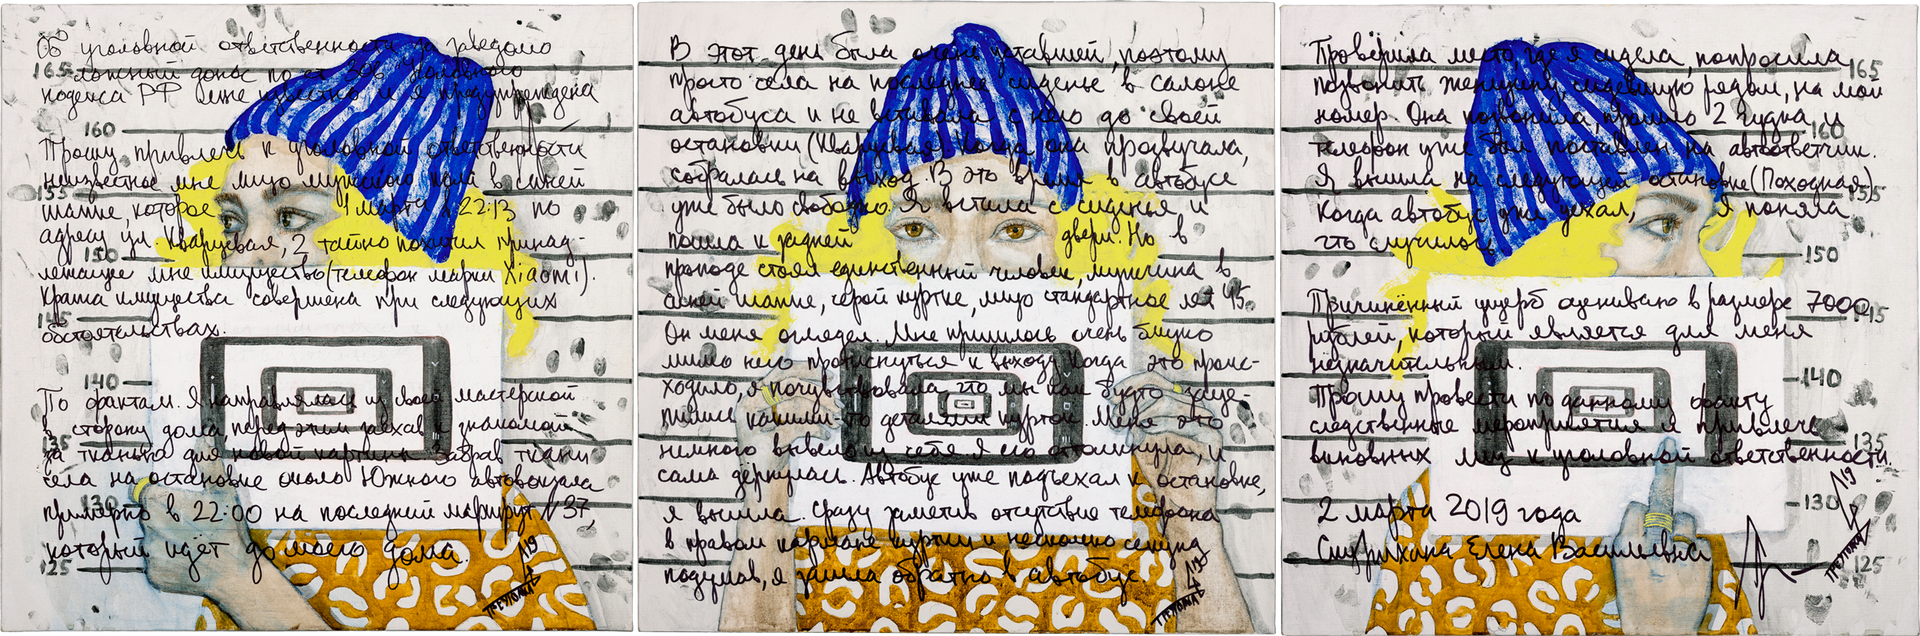 Об уголовной ответственности за заведомо
ложный донос по ст. 306 Уголовного
кодекса РФ мне известно и я предупреждена
Прошу привлечь к уголовной ответственности
неизвестное мне лицо мужского пола в синей
шапке, которое 1 марта в 22:13 по
адресу ул. 2 тайно похитил принад-
лежащее мне имущество (телефон марки Xiaomi).
Кража имущества совершена при следующих
обстоятельствах.
По фактам. Я направлялась из своей мастерской
в сторону дома, перед этим заехав к знакомой
за тканью для новой картины. Забрав ткани
села на остановке около Южного автовокзала
примерно в 22:00 на последний маршрут N37,
который идёт до моего дома.
165
160
155
150
145
140
135
130
125
19
В этот день была очень уставшей, поэтому
просто села на последнее сиденье в салоне
автобуса и не вставала с него до своей
остановки Когда она прозвучала,
собралась на выход. В это время в автобусе
уже было свободно. Я встала с сиденья и
пошла к задней двери. Но в
проходе стоял единственный человек, мужчина в
синей шапке, серой куртке, лицо стандартное лет 45.
Он меня оглядел. Мне пришлось очень близко
мимо него протиснуться к выходу. Когда это проис-
ходило, я почувствовала что мы как будто заце-
пились какими-то деталями курток. Меня это
немного вывело из себя. Я его оттолкнула, и
сама дёрнулась. Автобус уже подъехал к остановке,
я вышла. Сразу заметив отсутствие телефона
в правом кармане куртки и несколько секунд
подумав, я зашла обратно в автобус.
19
Проверила место, где я сидела, попросила
позвонить женщину, сидевшую рядом, на мой
номер. Она позвонила, прошло 2 гудка и
телефон уже был поставлен на автоответчик.
Я вышла на следующей остановке (Походная)
Когда автобус уже уехал, я поняла
что случилось.
Причинённый ущерб оцениваю в размере 7000
рублей, который является для меня
незначительным.
Прошу провести по данному факту
следственные мероприятия и привлечь
виновных лиц к уголовной ответственности.
2 марта 2019 года
Елена Васильевна
165
160
155
150
145
140
135
130
125
19